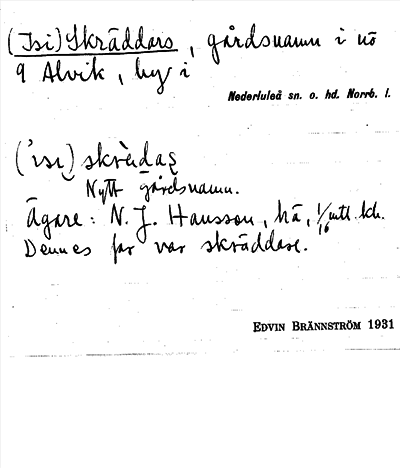 (Isi) Skräddars, gårdsnamn i nö
9 Alvik, by i
Nederluleå sn. o. hd. Norrb. l.
('ɪsi) skrèdaș
Nytt gårdsnamn.
Ägare: N. J. Hansson, hä, 1/16 mtl.
Dennes far var skräddare.
EDVIN BRÄNNSTRÖM 1931